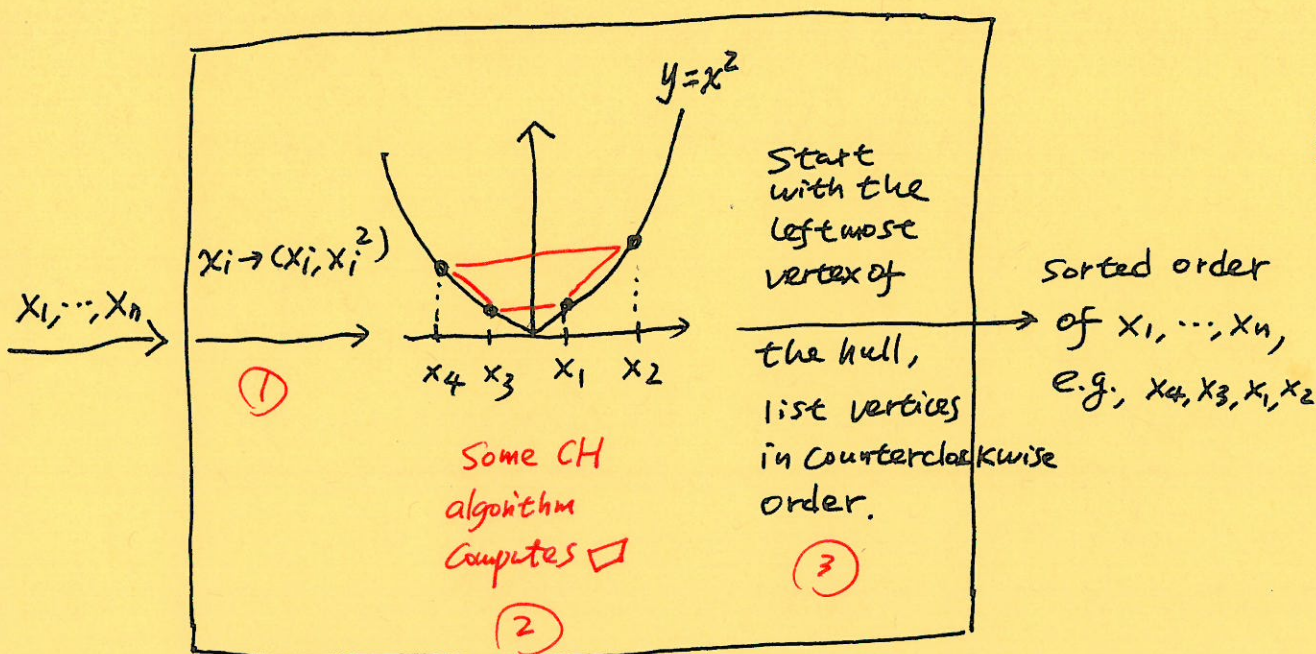 x₁, ..., xₙ
xᵢ → (xᵢ, xᵢ²)
①
y = x²
x₄ x₃ x₁ x₂
Some CH
algorithm
computes ▱
②
Start
with the
leftmost
vertex of
the hull,
list vertices
in counterclockwise
order.
③
Sorted order
of x₁, ..., xₙ,
e.g., x₄, x₃, x₁, x₂